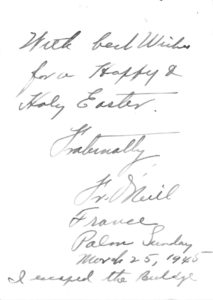 With best Wishes
for a Happy &
Holy Easter.
Fraternally
Fr. O'Neill
France
Palm Sunday
March 25, 1945
I escaped the Buldge